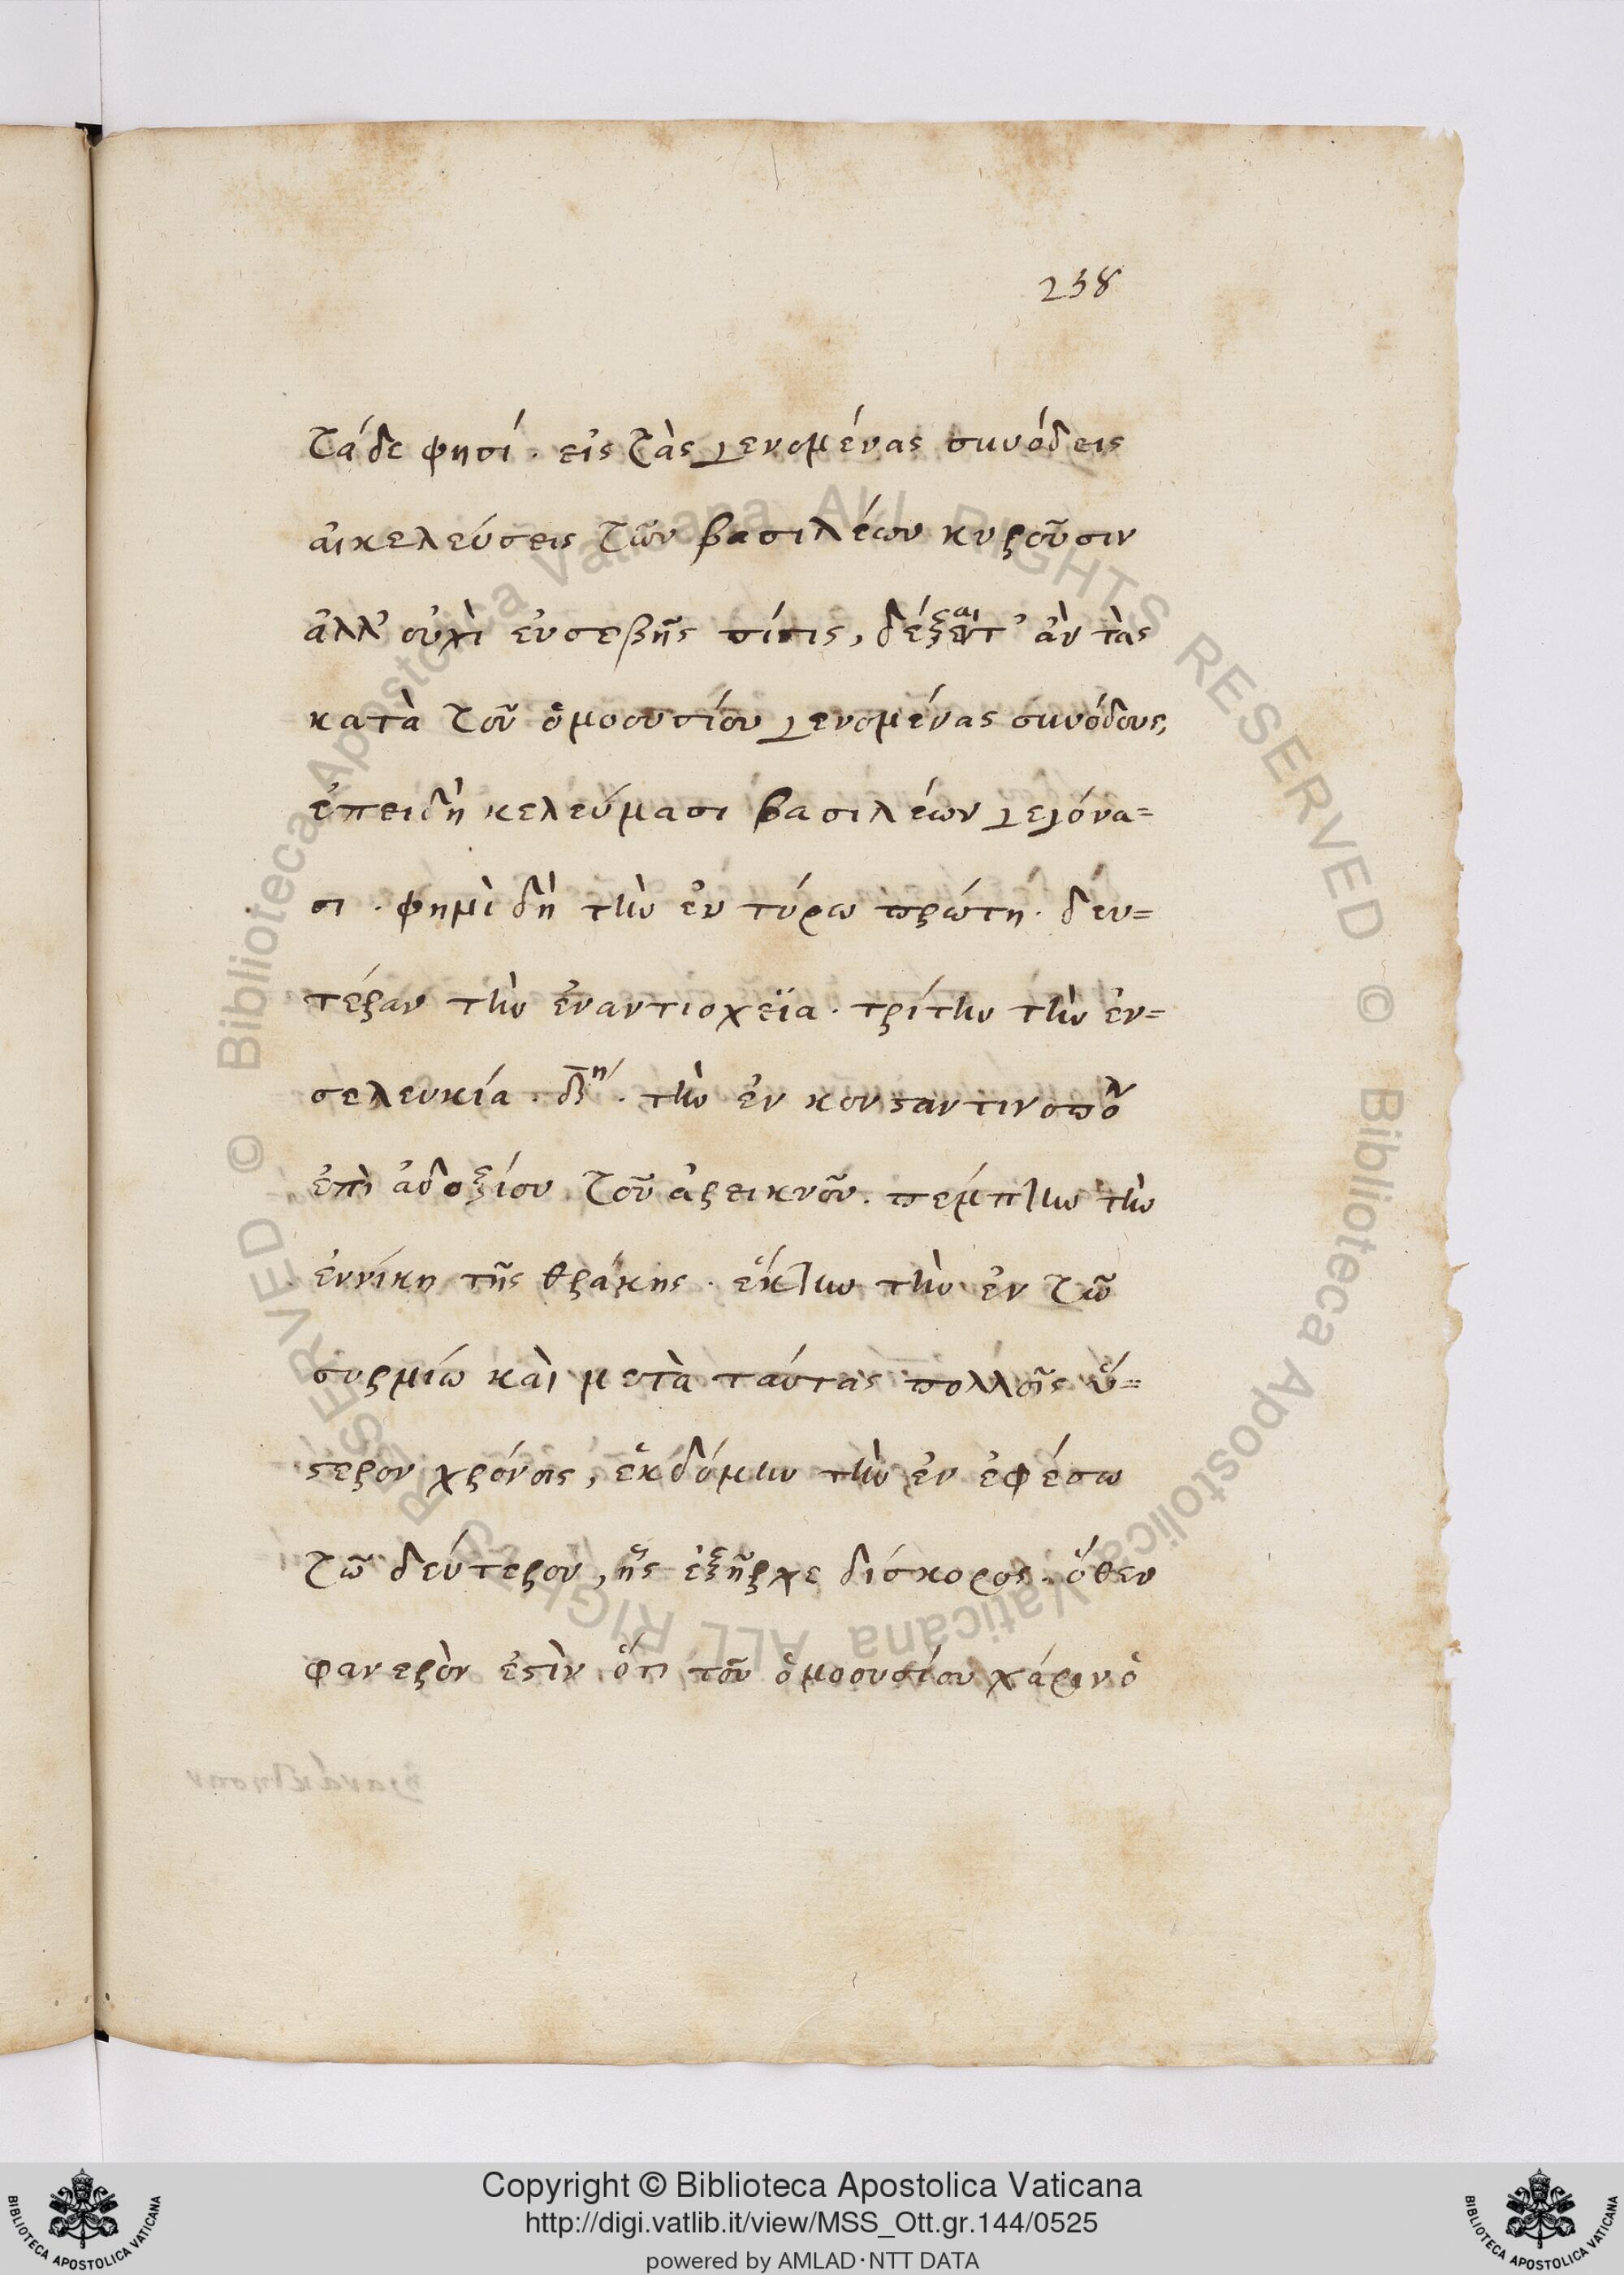 238
τάδε φησί. εἰς τὰς γενομένας συνόδεις
αἱκελεύσεις τῶν βασιλέων κυροῦσιν
ἀλλ' οὐχὶ εὐσεβῆς πίστις, δέξαιτ' ἂν τὰς
κατὰ τοῦ ὁμοουσίου γενομένας συνόδους,
ἐπειδὴ κελεύμασι βασιλέων γεγόνα=
σι. φημὶ δὴ τὴν ἐν τύρω πρώτη. δευ=
τέραν τὴν ἐναντιοχεΐα. τρίτην τὴν ἐν=
σελευκία. δ̅η. τὴν ἐν κονσταντινοπό^λ
ἐπὶ ἀδοξίου τοῦ ἀρεικνοῦ. πέμπτην τὴν
ἐννίκη τῆς θράκης. ἕκτην τὴν ἐν τῶ
συρμίω καὶ μετὰ ταύτας πολλοῖς ὕ=
στερον χρόνοις, ἑκδόμην τὴν ἐν ἐφέσω
τῶ δεύτερον, ἧς ἐξῆρχε δίσκορος. ὅθεν
φανερὸν ἐστὶν ὅτι τοῦ ὁμοουσίου χάριν ὁ
© Biblioteca Apostolica Vaticana ALL RIGHTS RESERVED
© Biblioteca Apostolica Vaticana ALL RIGHTS RESERVED
Copyright © Biblioteca Apostolica Vaticana
http://digi.vatlib.it/view/MSS_Ott.gr.144/0525
powered by AMLAD·NTT DATA
BIBLIOTECA APOSTOLICA VATICANA
BIBLIOTECA APOSTOLICA VATICANA